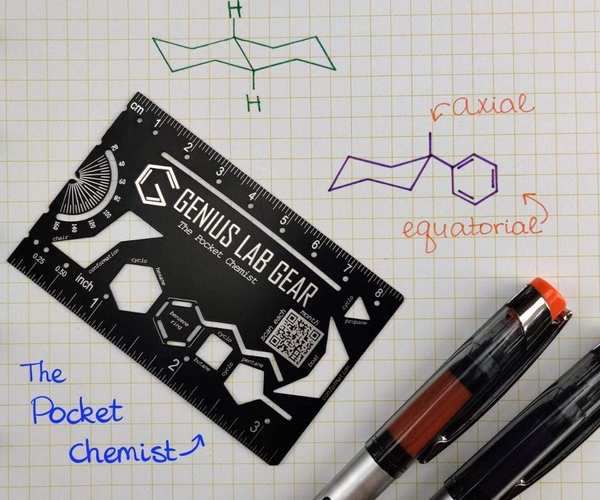 H
H
axial
equatorial
cm 1 2 3 4 5 6 7 8
GENIUS LAB GEAR
The Pocket Chemist
chair
conformation
0.25 0.50 inch 1 2 3
cyclo
hexane
benzene
ring
cyclo
butane
cyclo
pentane
scan each
month
boat
conformation
cyclo
propane
The
Pocket
Chemist